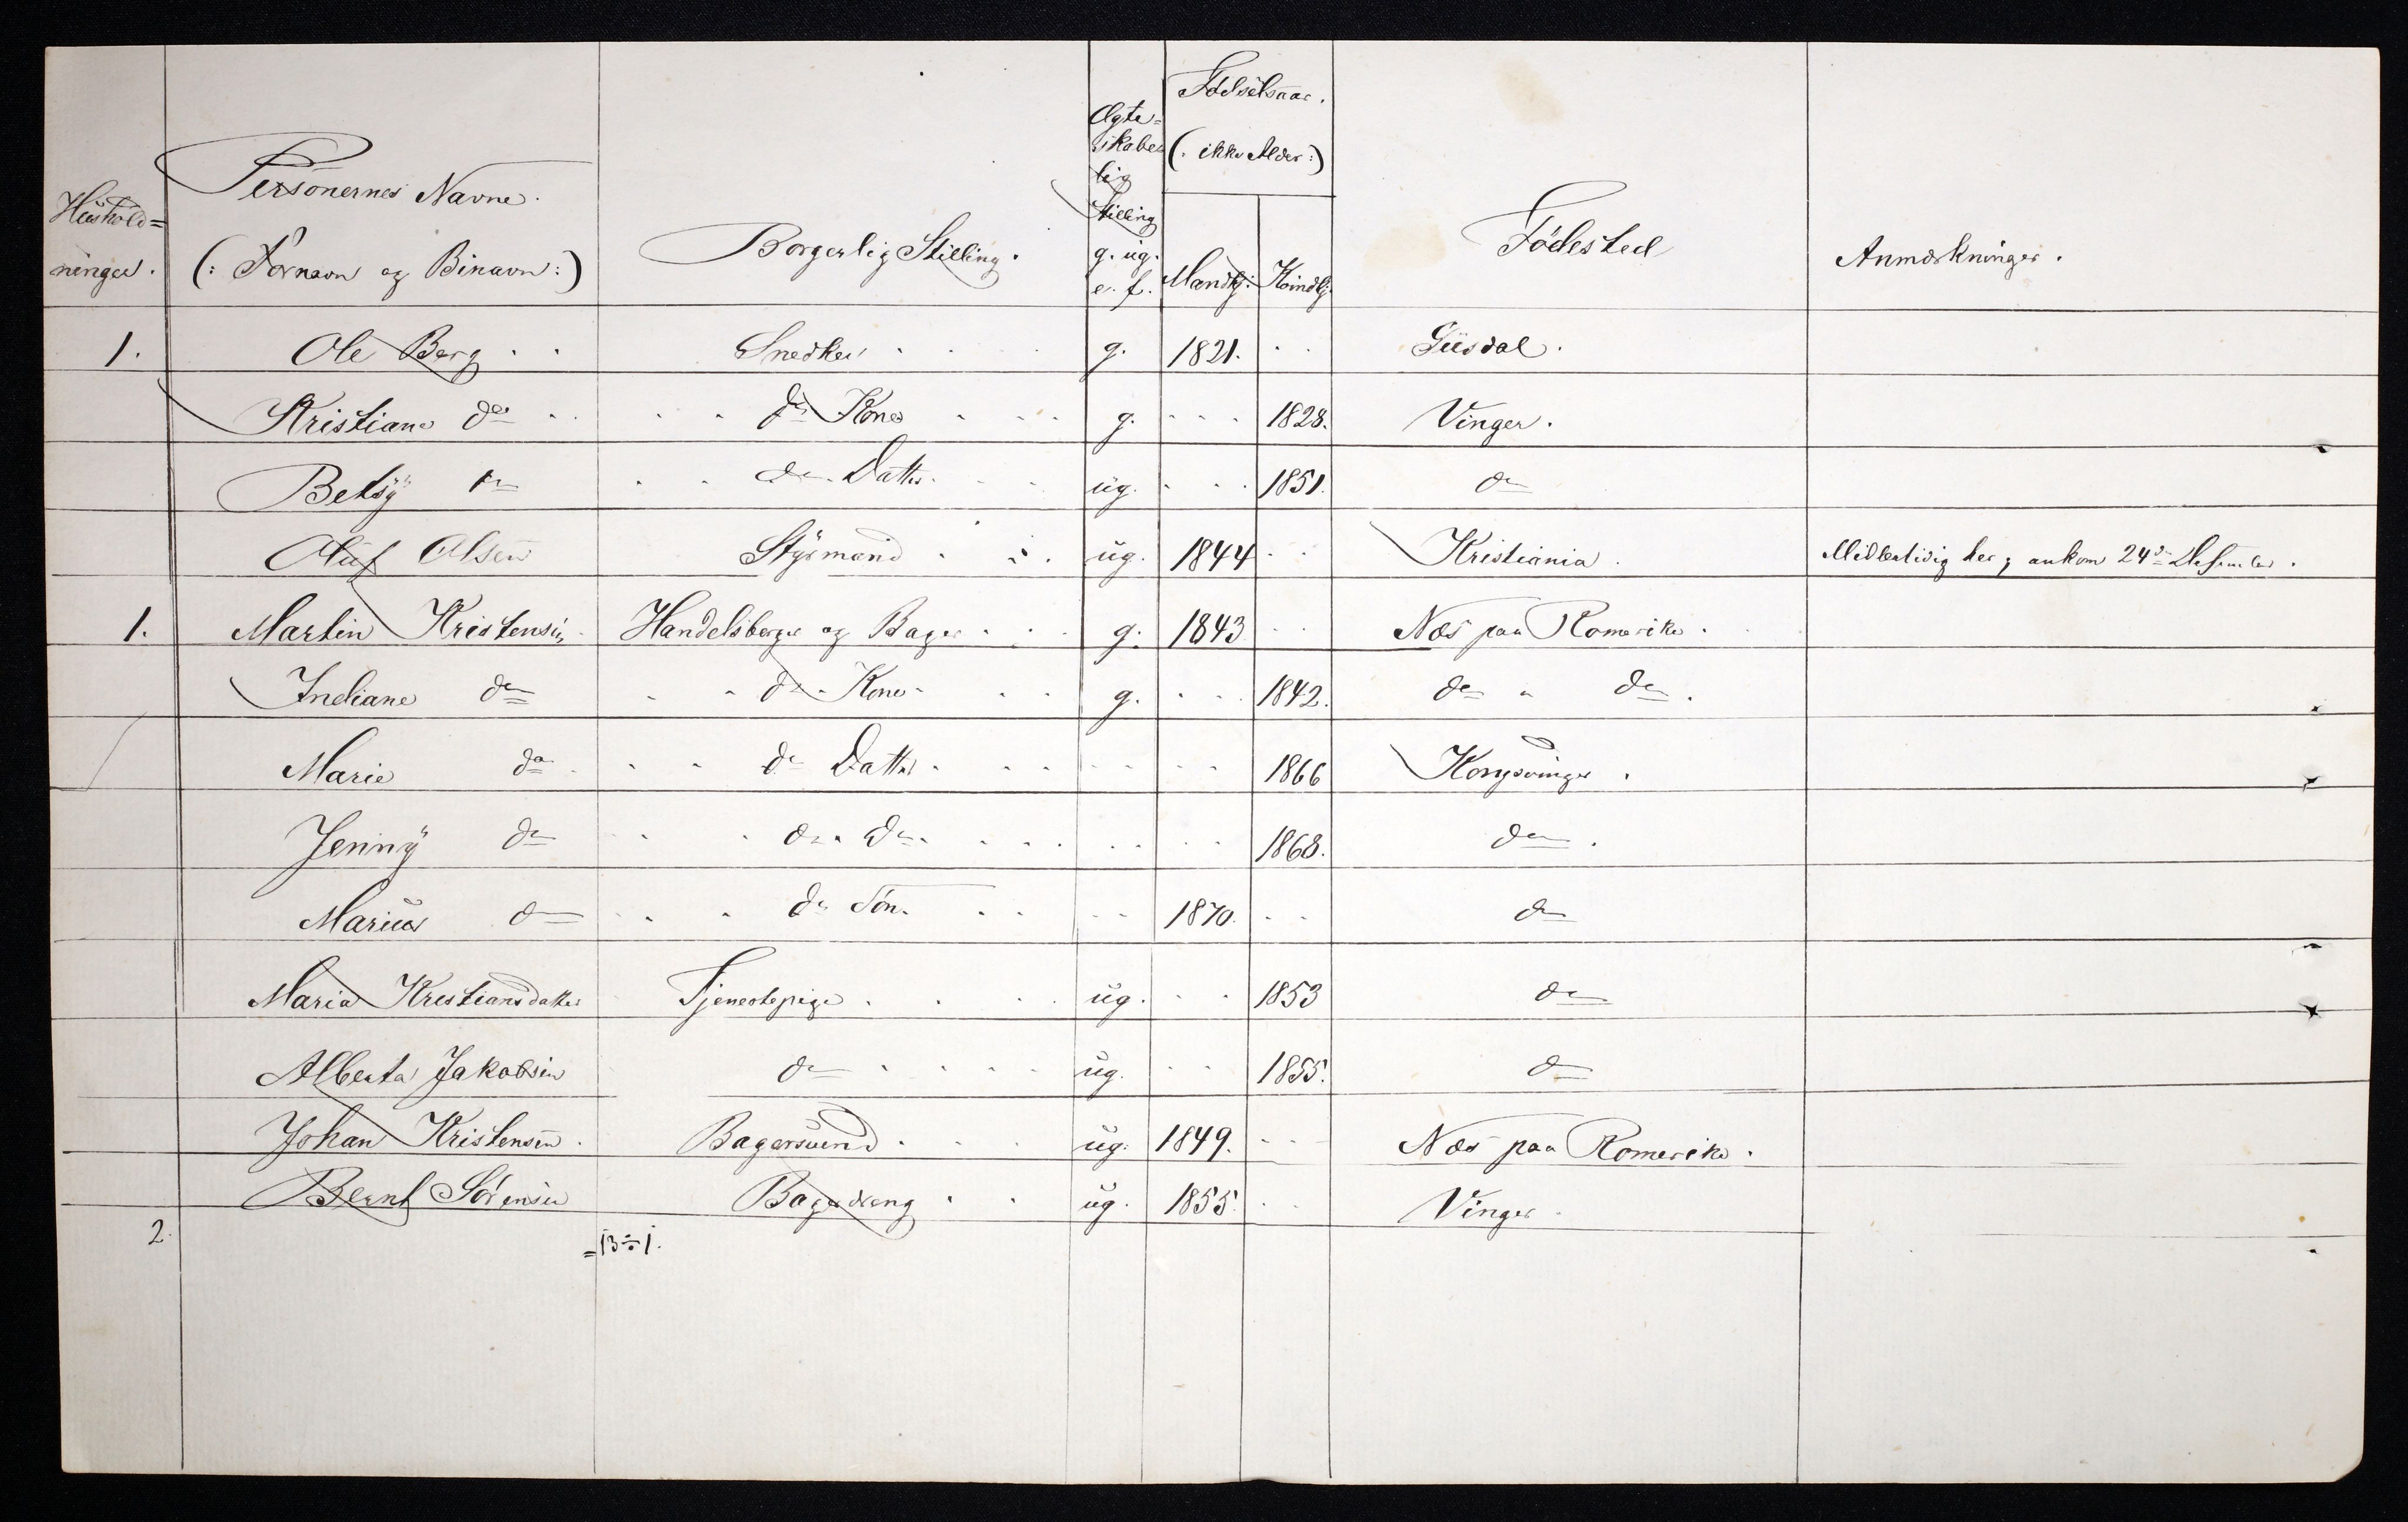 Hushold=
ninger.
Personernes Navne.
(: Fornavn og Binavn :)
Borgerlig Stilling.
Ægte=
skabe
lig
Stilling
g. ug.
e. f.
Födselsaar.
(: ikke Alder :)
Mandkj. Kvindkj.
Födested
Anmærkninger.
1. Ole Berg . . Snedker . . . g. 1821. . . Gusdal.
Kristiane do . . . . do Kone . . . g. . . . 1828. Vinger.
Betsÿ do . . do Datter . . . ug. . . . 1851. do
Oluf Olsen Styrmand . . . ug. 1844 . . Kristiania. Midlertidig her; ankom 24de Desember.
1. Martin Kristensen. Handelsborger og Bager . . . g. 1843 . . Næs paa Romerike.
Indiane do . . do Kone . . . g. . . . 1842. do " do.
Marie do . . . do Datter . . . . . . . 1866 Kongsvinger.
Jennÿ do . . do . do . . . . . . . . 1868. do.
Marius do . . do Sön. . . . . 1870. . . do
Maria Kristiansdatter Tjenestepige . . . . ug. . . 1853 do
Alberta Jakobsen do . . . . ug. . . 1855. do
Johan Kristensen. Bagersvend . . . ug. 1849. . . Næs paa Romerike.
Bernt Sörensen Bagerdreng . . ug. 1855. . . Vinger.
2. =13÷1.